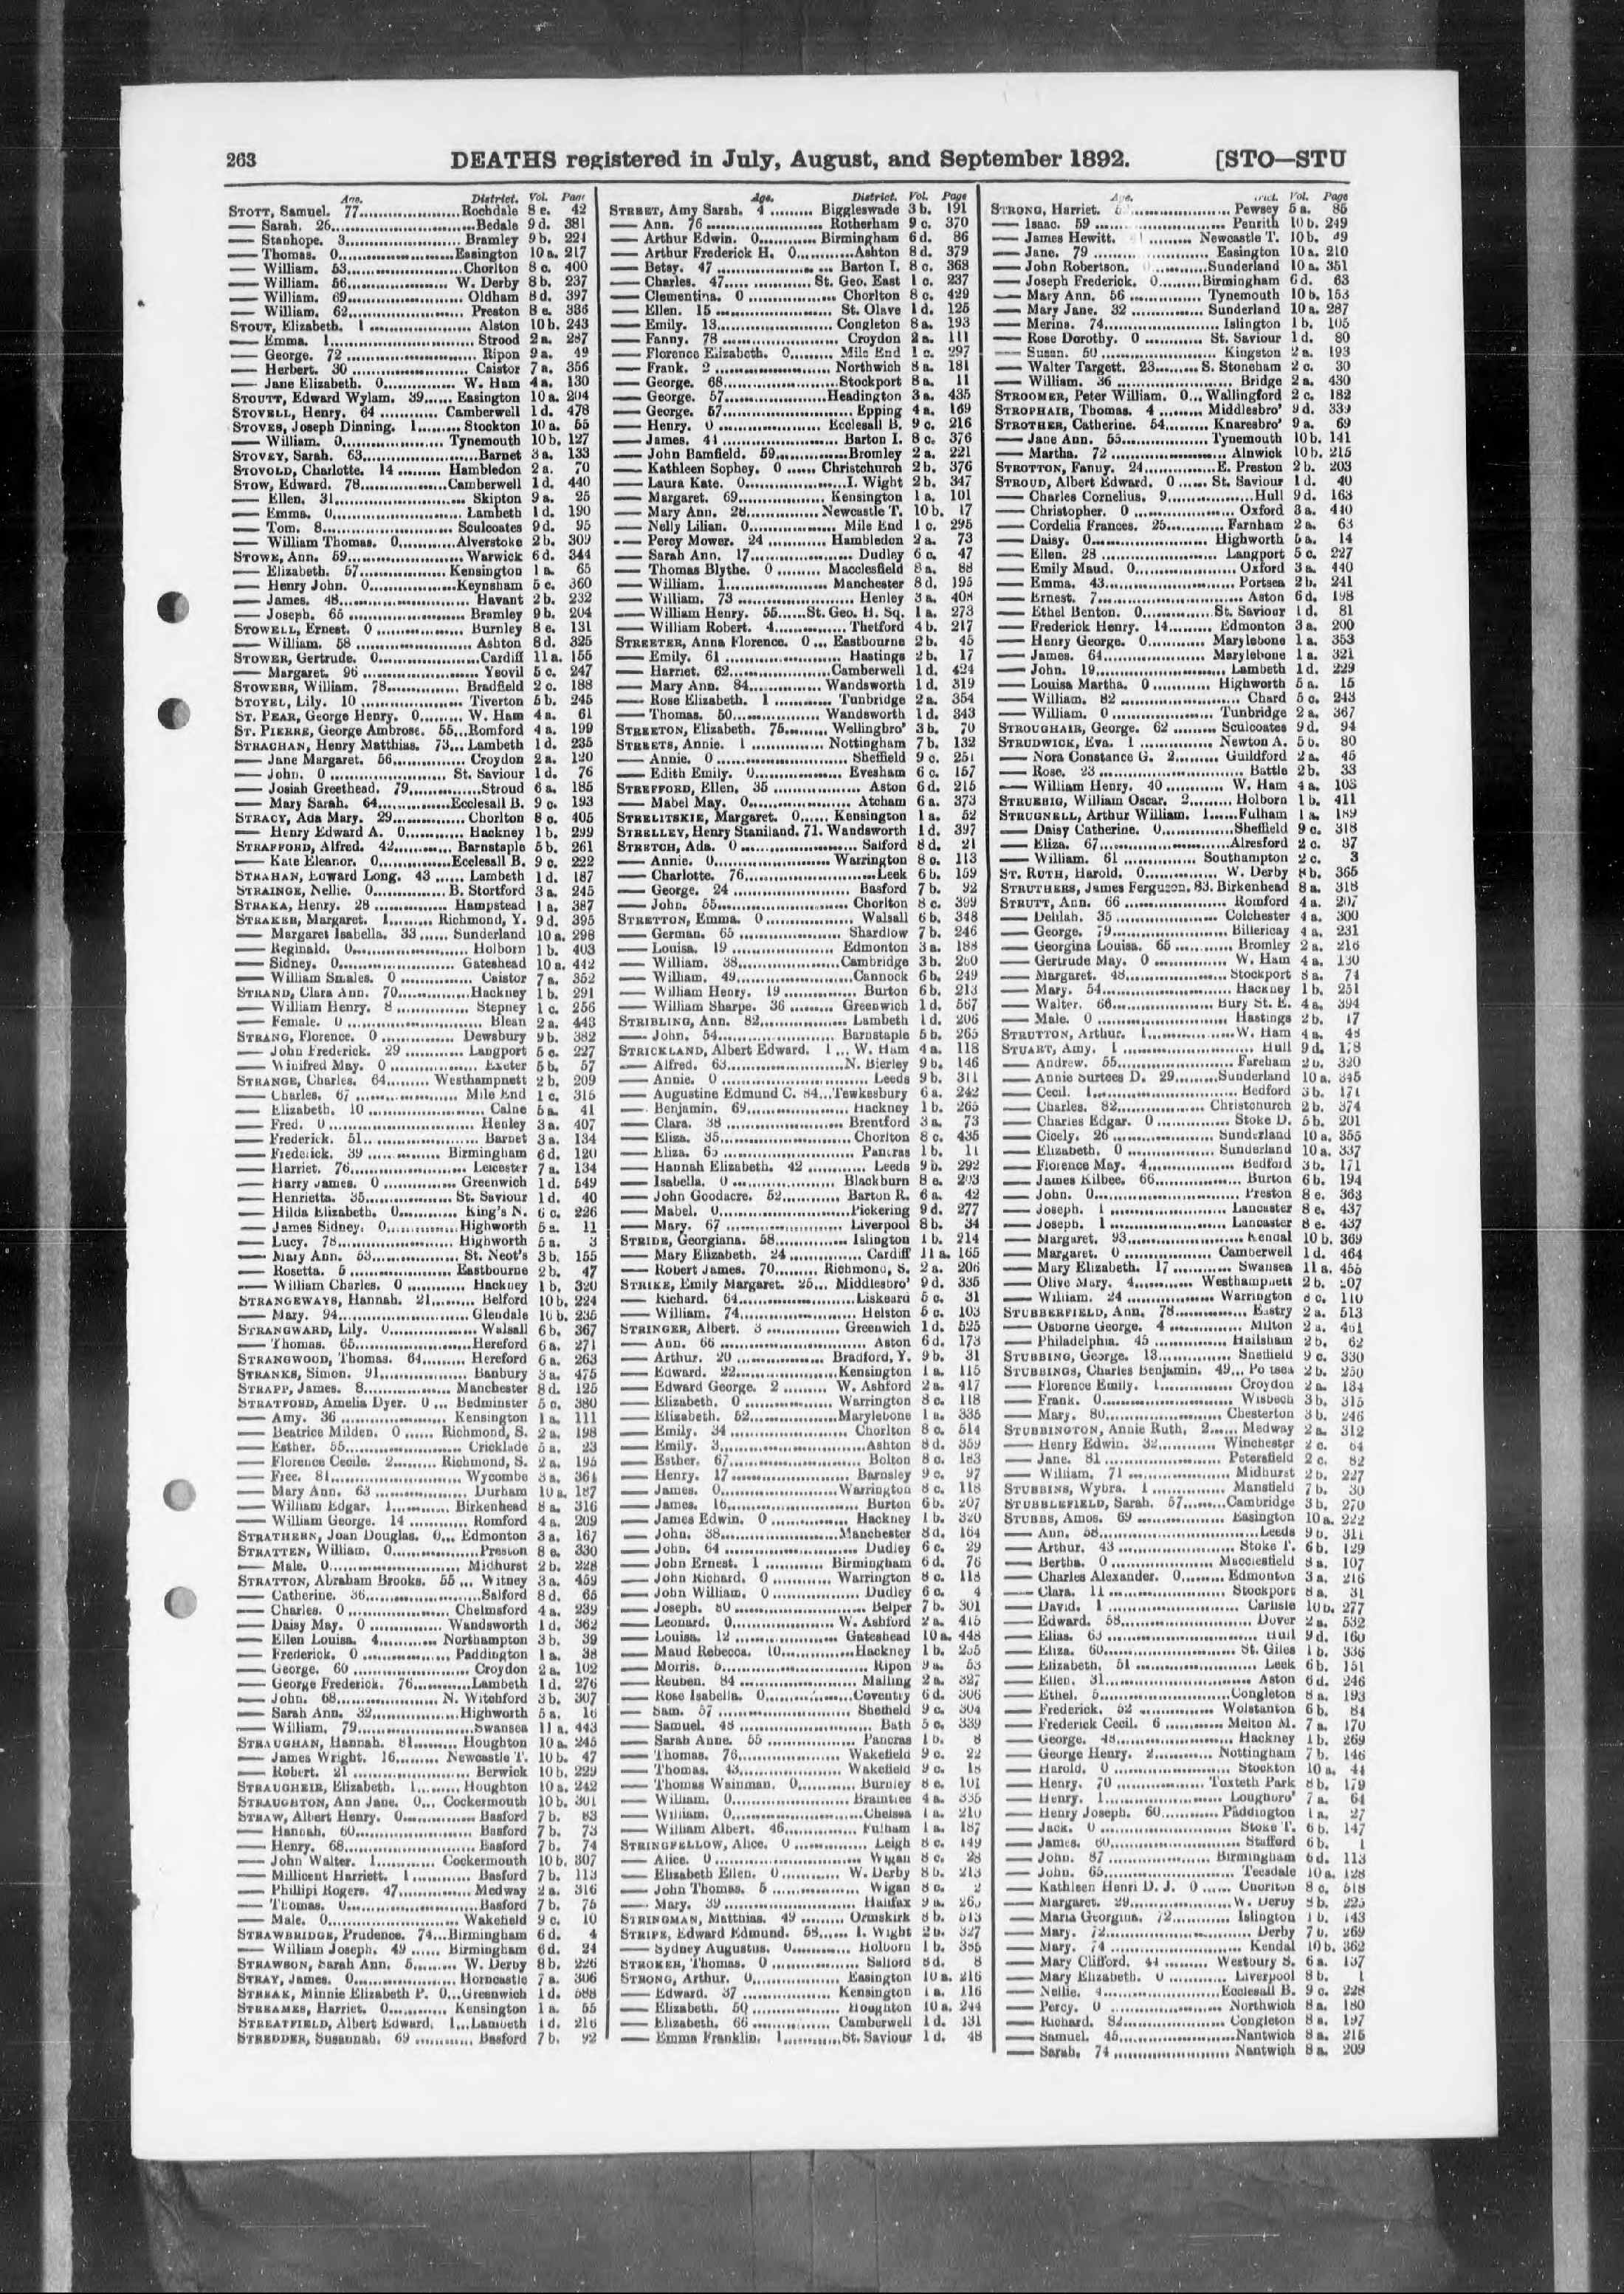 263 DEATHS registered in July, August, and September 1892. [STO—STU
Age. District. Vol. Page
STOTT, Samuel. 77 Rochdale 8 e. 42
— Sarah. 26 Bedale 9 d. 381
— Stanhope. 3 Bramley 9 b. 221
— Thomas. 0 Easington 10 a. 217
— William. 53 Chorlton 8 c. 400
— William. 56 W. Derby 8 b. 237
— William. 69 Oldham 8 d. 397
— William. 62 Preston 8 e. 386
STOUT, Elizabeth. 1 Alston 10 b. 243
— Emma. 1 Strood 2 a. 287
— George. 72 Ripon 9 a. 49
— Herbert. 30 Caistor 7 a. 356
— Jane Elizabeth. 0 W. Ham 4 a. 130
STOUTT, Edward Wylam. 39 Easington 10 a. 204
STOVELL, Henry. 64 Camberwell 1 d. 478
STOVES, Joseph Dinning. 1 Stockton 10 a. 55
— William. 0 Tynemouth 10 b. 127
STOVEY, Sarah. 63 Barnet 3 a. 133
STOVOLD, Charlotte. 14 Hambledon 2 a. 70
STOW, Edward. 78 Camberwell 1 d. 440
— Ellen. 31 Skipton 9 a. 25
— Emma. 0 Lambeth 1 d. 190
— Tom. 8 Sculcoates 9 d. 95
— William Thomas. 0 Alverstoke 2 b. 309
STOWE, Ann. 59 Warwick 6 d. 344
— Elizabeth. 57 Kensington 1 a. 65
— Henry John. 0 Keynsham 5 c. 360
— James. 48 Havant 2 b. 232
— Joseph. 65 Bramley 9 b. 204
STOWELL, Ernest. 0 Burnley 8 e. 131
— William. 58 Ashton 8 d. 325
STOWER, Gertrude. 0 Cardiff 11 a. 155
— Margaret. 96 Yeovil 5 c. 247
STOWERS, William. 78 Bradfield 2 c. 188
STOYEL, Lily. 10 Tiverton 5 b. 245
ST. PEAR, George Henry. 0 W. Ham 4 a. 61
ST. PIERRE, George Ambrose. 55 Romford 4 a. 199
STRACHAN, Henry Matthias. 73 Lambeth 1 d. 235
— Jane Margaret. 56 Croydon 2 a. 120
— John. 0 St. Saviour 1 d. 76
— Josiah Greethead. 79 Stroud 6 a. 185
— Mary Sarah. 64 Ecclesall B. 9 c. 193
STRACY, Ada Mary. 29 Chorlton 8 c. 405
— Henry Edward A. 0 Hackney 1 b. 299
STRAFFORD, Alfred. 42 Barnstaple 5 b. 261
— Kate Eleanor. 0 Ecclesall B. 9 c. 222
STRAHAN, Edward Long. 43 Lambeth 1 d. 187
STRAINGE, Nellie. 0 B. Stortford 3 a. 245
STRAKA, Henry. 28 Hampstead 1 a. 387
STRAKER, Margaret. 1 Richmond, Y. 9 d. 395
— Margaret Isabella. 33 Sunderland 10 a. 298
— Reginald. 0 Holborn 1 b. 403
— Sidney. 0 Gateshead 10 a. 442
— William Smales. 0 Caistor 7 a. 352
STRAND, Clara Ann. 70 Hackney 1 b. 291
— William Henry. 8 Stepney 1 c. 256
— Female. 0 Blean 2 a. 443
STRANG, Florence. 0 Dewsbury 9 b. 382
— John Frederick. 29 Langport 5 c. 227
— Winifred May. 0 Exeter 5 b. 57
STRANGE, Charles. 64 Westhampnett 2 b. 209
— Charles. 67 Mile End 1 c. 315
— Elizabeth. 10 Calne 5 a. 41
— Fred. 0 Henley 3 a. 407
— Frederick. 51 Barnet 3 a. 134
— Frederick. 39 Birmingham 6 d. 120
— Harriet. 76 Leicester 7 a. 134
— Harry James. 0 Greenwich 1 d. 549
— Henrietta. 35 St. Saviour 1 d. 40
— Hilda Elizabeth. 0 King's N. 6 c. 226
— James Sidney. 0 Highworth 5 a. 11
— Lucy. 78 Highworth 5 a. 3
— Mary Ann. 53 St. Neot's 3 b. 155
— Rosetta. 5 Eastbourne 2 b. 47
— William Charles. 0 Hackney 1 b. 320
STRANGEWAYS, Hannah. 21 Belford 10 b. 224
— Mary. 94 Glendale 10 b. 235
STRANGWARD, Lily. 0 Walsall 6 b. 367
— Thomas. 65 Hereford 6 a. 271
STRANGWOOD, Thomas. 64 Hereford 6 a. 263
STRANKS, Simon. 91 Banbury 3 a. 475
STRAPP, James. 8 Manchester 8 d. 125
STRATFORD, Amelia Dyer. 0 Bedminster 5 c. 380
— Amy. 36 Kensington 1 a. 111
— Beatrice Milden. 0 Richmond, S. 2 a. 198
— Esther. 55 Cricklade 5 a. 23
— Florence Cecile. 2 Richmond, S. 2 a. 195
— Free. 81 Wycombe 3 a. 361
— Mary Ann. 63 Durham 10 a. 187
— William Edgar. 1 Birkenhead 8 a. 316
— William George. 14 Romford 4 a. 209
STRATHERN, Joan Douglas. 0 Edmonton 3 a. 167
STRATTEN, William. 0 Preston 8 e. 330
— Male. 0 Midhurst 2 b. 228
STRATTON, Abraham Brooks. 55 Witney 3 a. 459
— Catherine. 36 Salford 8 d. 65
— Charles. 0 Chelmsford 4 a. 239
— Daisy May. 0 Wandsworth 1 d. 362
— Ellen Louisa. 4 Northampton 3 b. 39
— Frederick. 0 Paddington 1 a. 38
— George. 60 Croydon 2 a. 102
— George Frederick. 76 Lambeth 1 d. 276
— John. 68 N. Witchford 3 b. 307
— Sarah Ann. 32 Highworth 5 a. 16
— William. 79 Swansea 11 a. 443
STRAUGHAN, Hannah. 81 Houghton 10 a. 245
— James Wright. 16 Newcastle T. 10 b. 47
— Robert. 21 Berwick 10 b. 229
STRAUGHEIR, Elizabeth. 1 Houghton 10 a. 242
STRAUGHTON, Ann Jane. 0 Cockermouth 10 b. 301
STRAW, Albert Henry. 0 Basford 7 b. 83
— Hannah. 60 Basford 7 b. 73
— Henry. 68 Basford 7 b. 74
— John Walter. 1 Cockermouth 10 b. 307
— Millicent Harriett. 1 Basford 7 b. 113
— Phillipi Rogers. 47 Medway 2 a. 316
— Thomas. 0 Basford 7 b. 75
— Male. 0 Wakefield 9 c. 10
STRAWBRIDGE, Prudence. 74 Birmingham 6 d. 4
— William Joseph. 49 Birmingham 6 d. 24
STRAWSON, Sarah Ann. 5 W. Derby 8 b. 226
STRAY, James. 0 Horncastle 7 a. 306
STREAK, Minnie Elizabeth P. 0 Greenwich 1 d. 588
STREAMES, Harriet. 0 Kensington 1 a. 55
STREATFIELD, Albert Edward. 1 Lambeth 1 d. 216
STREDDER, Susannah. 69 Basford 7 b. 92
Age. District. Vol. Page
STREET, Amy Sarah. 4 Biggleswade 3 b. 191
— Ann. 76 Rotherham 9 c. 370
— Arthur Edwin. 0 Birmingham 6 d. 86
— Arthur Frederick H. 0 Ashton 8 d. 379
— Betsy. 47 Barton I. 8 c. 368
— Charles. 47 St. Geo. East 1 c. 237
— Clementina. 0 Chorlton 8 c. 429
— Ellen. 15 St. Olave 1 d. 125
— Emily. 13 Congleton 8 a. 193
— Fanny. 78 Croydon 2 a. 111
— Florence Elizabeth. 0 Mile End 1 c. 297
— Frank. 2 Northwich 8 a. 181
— George. 68 Stockport 8 a. 11
— George. 57 Headington 3 a. 435
— George. 57 Epping 4 a. 169
— Henry. 0 Ecclesall B. 9 c. 216
— James. 41 Barton I. 8 c. 376
— John Bamfield. 59 Bromley 2 a. 221
— Kathleen Sophey. 0 Christchurch 2 b. 376
— Laura Kate. 0 I. Wight 2 b. 347
— Margaret. 69 Kensington 1 a. 101
— Mary Ann. 28 Newcastle T. 10 b. 17
— Nelly Lilian. 0 Mile End 1 c. 295
— Percy Mower. 24 Hambledon 2 a. 73
— Sarah Ann. 17 Dudley 6 c. 47
— Thomas Blythe. 0 Macclesfield 8 a. 88
— William. 1 Manchester 8 d. 195
— William. 73 Henley 3 a. 408
— William Henry. 55 St. Geo. H. Sq. 1 a. 273
— William Robert. 4 Thetford 4 b. 217
STREETER, Anna Florence. 0 Eastbourne 2 b. 45
— Emily. 61 Hastings 2 b. 17
— Harriet. 62 Camberwell 1 d. 424
— Mary Ann. 84 Wandsworth 1 d. 319
— Rose Elizabeth. 1 Tunbridge 2 a. 354
— Thomas. 50 Wandsworth 1 d. 343
STREETON, Elizabeth. 75 Wellingbro' 3 b. 70
STREETS, Annie. 1 Nottingham 7 b. 132
— Annie. 0 Sheffield 9 c. 251
— Edith Emily. 0 Evesham 6 c. 157
STREFFORD, Ellen. 35 Aston 6 d. 215
— Mabel May. 0 Atcham 6 a. 373
STRELITSKIE, Margaret. 0 Kensington 1 a. 52
STRELLEY, Henry Staniland. 71. Wandsworth 1 d. 397
STRETCH, Ada. 0 Salford 8 d. 21
— Annie. 0 Warrington 8 c. 113
— Charlotte. 76 Leek 6 b. 159
— George. 24 Basford 7 b. 92
— John. 55 Chorlton 8 c. 399
STRETTON, Emma. 0 Walsall 6 b. 348
— German. 65 Shardlow 7 b. 246
— Louisa. 19 Edmonton 3 a. 188
— William. 38 Cambridge 3 b. 260
— William. 49 Cannock 6 b. 249
— William Henry. 19 Burton 6 b. 213
— William Sharpe. 36 Greenwich 1 d. 567
STRIBLING, Ann. 82 Lambeth 1 d. 206
— John. 54 Barnstaple 5 b. 265
STRICKLAND, Albert Edward. 1 W. Ham 4 a. 118
— Alfred. 63 N. Bierley 9 b. 146
— Annie. 0 Leeds 9 b. 311
— Augustine Edmund C. 84 Tewkesbury 6 a. 242
— Benjamin. 69 Hackney 1 b. 265
— Clara. 38 Brentford 3 a. 73
— Eliza. 35 Chorlton 8 c. 435
— Eliza. 65 Pancras 1 b. 11
— Hannah Elizabeth. 42 Leeds 9 b. 292
— Isabella. 0 Blackburn 8 e. 203
— John Goodacre. 52 Barton R. 6 a. 42
— Mabel. 0 Pickering 9 d. 277
— Mary. 67 Liverpool 8 b. 34
STRIDE, Georgiana. 58 Islington 1 b. 214
— Mary Elizabeth. 24 Cardiff 11 a. 165
— Robert James. 70 Richmond, S. 2 a. 206
STRIKE, Emily Margaret. 25 Middlesbro' 9 d. 335
— Richard. 64 Liskeard 5 c. 31
— William. 74 Helston 5 c. 103
STRINGER, Albert. 3 Greenwich 1 d. 525
— Ann. 66 Aston 6 d. 173
— Arthur. 20 Bradford, Y. 9 b. 31
— Edward. 22 Kensington 1 a. 115
— Edward George. 2 W. Ashford 2 a. 417
— Elizabeth. 0 Warrington 8 c. 118
— Elizabeth. 52 Marylebone 1 a. 335
— Emily. 34 Chorlton 8 c. 514
— Emily. 3 Ashton 8 d. 359
— Esther. 67 Bolton 8 c. 183
— Henry. 17 Barnsley 9 c. 97
— James. 0 Warrington 8 c. 118
— James. 16 Burton 6 b. 207
— James Edwin. 0 Hackney 1 b. 320
— John. 38 Manchester 8 d. 164
— John. 64 Dudley 6 c. 29
— John Ernest. 1 Birmingham 6 d. 76
— John Richard. 0 Warrington 8 c. 118
— John William. 0 Dudley 6 c. 4
— Joseph. 80 Belper 7 b. 301
— Leonard. 0 W. Ashford 2 a. 415
— Louisa. 12 Gateshead 10 a. 448
— Maud Rebecca. 10 Hackney 1 b.
— Morris. 5 Ripon 9 a. 53
— Reuben. 84 Malling 2 a. 327
— Rose Isabella. 0 Coventry 6 d. 306
— Sam. 57 Sheffield 9 c. 304
— Samuel. 48 Bath 5 c. 339
— Sarah Anne. 55 Pancras 1 b. 8
— Thomas. 76 Wakefield 9 c. 22
— Thomas. 43 Wakefield 9 c. 18
— Thomas Wainman. 0 Burnley 8 e. 101
— William. 0 Braintree 4 a. 335
— William. 0 Chelsea 1 a. 210
— William Albert. 46 Fulham 1 a. 187
STRINGFELLOW, Alice. 0 Leigh 8 c. 149
— Alice. 0 Wigan 8 c. 28
— Elizabeth Ellen. 0 W. Derby 8 b. 213
— John Thomas. 5 Wigan 8 c. 2
— Mary. 39 Halifax 9 a.
STRINGMAN, Matthias. 49 Ormskirk 8 b. 513
STRIPE, Edward Edmund. 58 I. Wight 2 b. 327
— Sydney Augustus. 0 Holborn 1 b. 385
STROKER, Thomas. 0 Salford 8 d. 8
STRONG, Arthur. 0 Easington 10 a. 216
— Edward. 37 Kensington 1 a. 116
— Elizabeth. 50 Houghton 10 a. 244
— Elizabeth. 66 Camberwell 1 d. 431
— Emma Franklin. 1 St. Saviour 1 d. 48
Vol. Page
STRONG, Harriet. Pewsey 5 a. 85
— Isaac. 59 Penrith 10 b. 249
— James Hewitt. Newcastle T. 10 b. 49
— Jane. 79 Easington 10 a. 210
— John Robertson. Sunderland 10 a. 351
— Joseph Frederick. 0 Birmingham 6 d. 63
— Mary Ann. 56 Tynemouth 10 b. 153
— Mary Jane. 32 Sunderland 10 a. 287
— Merina. 74 Islington 1 b. 105
— Rose Dorothy. 0 St. Saviour 1 d. 80
— Susan. 50 Kingston 2 a. 193
— Walter Targett. 23 S. Stoneham 2 c. 30
— William. 36 Bridge 2 a. 430
STROOMER, Peter William. 0 Wallingford 2 c. 182
STROPHAIR, Thomas. 4 Middlesbro' 9 d. 339
STROTHER, Catherine. 54 Knaresbro' 9 a. 69
— Jane Ann. 55 Tynemouth 10 b. 141
— Martha. 72 Alnwick 10 b. 215
STROTTON, Fanny. 24 E. Preston 2 b. 203
STROUD, Albert Edward. 0 St. Saviour 1 d. 40
— Charles Cornelius. 9 Hull 9 d. 163
— Christopher. 0 Oxford 3 a. 440
— Cordelia Frances. 25 Farnham 2 a. 63
— Daisy. 0 Highworth 5 a. 14
— Ellen. 28 Langport 5 c. 227
— Emily Maud. 0 Oxford 3 a. 440
— Emma. 43 Portsea 2 b. 241
— Ernest. 7 Aston 6 d. 198
— Ethel Benton. 0 St. Saviour 1 d. 81
— Frederick Henry. 14 Edmonton 3 a. 200
— Henry George. 0 Marylebone 1 a. 353
— James. 64 Marylebone 1 a. 321
— John. 19 Lambeth 1 d. 229
— Louisa Martha. 0 Highworth 5 a. 15
— William. 82 Chard 5 c. 243
— William. 0 Tunbridge 2 a. 367
STROUGHAIR, George. 62 Sculcoates 9 d. 94
STRUDWICK, Eva. 1 Newton A. 5 b. 80
— Nora Constance G. 2 Guildford 2 a. 45
— Rose. 23 Battle 2 b. 33
— William Henry. 40 W. Ham 4 a. 103
STRUEBIG, William Oscar. 2 Holborn 1 b. 411
STRUGNELL, Arthur William. 1 Fulham 1 a. 189
— Daisy Catherine. 0 Sheffield 9 c. 318
— Eliza. 67 Alresford 2 c. 87
— William. 61 Southampton 2 c. 3
ST. RUTH, Harold. 0 W. Derby 8 b. 365
STRUTHERS, James Ferguson. 83. Birkenhead 8 a. 318
STRUTT, Ann. 66 Romford 4 a. 207
— Delilah. 35 Colchester 4 a. 300
— George. 79 Billericay 4 a. 231
— Georgina Louisa. 65 Bromley 2 a. 216
— Gertrude May. 0 W. Ham 4 a. 130
— Margaret. 48 Stockport 8 a. 71
— Mary. 54 Hackney 1 b. 251
— Walter. 66 Bury St. E. 4 a. 394
— Male. 0 Hastings 2 b. 17
STRUTTON, Arthur. 1 W. Ham 4 a. 48
STUART, Amy. 1 Hull 9 d.
— Andrew. 55 Fareham 2 b. 320
— Annie Surtees D. 29 Sunderland 10 a. 345
— Cecil. 1 Bedford 3 b. 171
— Charles. 82 Christchurch 2 b. 374
— Charles Edgar. 0 Stoke D. 5 b. 201
— Cicely. 26 Sunderland 10 a. 355
— Elizabeth. 0 Sunderland 10 a. 337
— Florence May. 4 Bedford 3 b. 171
— James Kilbee. 66 Burton 6 b. 194
— John. 0 Preston 8 e. 363
— Joseph. 1 Lancaster 8 e. 437
— Joseph. 1 Lancaster 8 e. 437
— Margaret. 93 Kendal 10 b. 369
— Margaret. 0 Camberwell 1 d. 464
— Mary Elizabeth. 17 Swansea 11 a. 455
— Olive Mary. 4 Westhampnett 2 b. 207
— William. 24 Warrington 8 c. 110
STUBBERFIELD, Ann. 78 Eastry 2 a. 513
— Osborne George. 4 Milton 2 a. 461
— Philadelphia. 45 Hailsham 2 b. 62
STUBBING, George. 13 Sheffield 9 c. 330
STUBBINGS, Charles Benjamin. 49 Portsea 2 b. 250
— Florence Emily. 1 Croydon 2 a. 134
— Frank. 0 Wisbech 3 b. 315
— Mary. 80 Chesterton 3 b. 246
STUBBINGTON, Annie Ruth. 2 Medway 2 a. 312
— Henry Edwin. 32 Winchester 2 c. 64
— Jane. 81 Petersfield 2 c. 82
— William. 71 Midhurst 2 b. 227
STUBBINS, Wybra. 1 Mansfield 7 b. 30
STUBBLEFIELD, Sarah. 57 Cambridge 3 b. 270
STUBBS, Amos. 69 Easington 10 a. 222
— Ann. 58 Leeds 9 b. 311
— Arthur. 43 Stoke T. 6 b. 129
— Bertha. 0 Macclesfield 8 a. 107
— Charles Alexander. 0 Edmonton 3 a. 216
— Clara. 11 Stockport 8 a. 31
— David. 1 Carlisle 10 b. 277
— Edward. 58 Dover 2 a. 532
— Elias. 63 Hull 9 d. 160
— Eliza. 60 St. Giles 1 b. 336
— Elizabeth. 51 Leek 6 b. 151
— Ellen. 31 Aston 6 d. 246
— Ethel. 5 Congleton 8 a. 193
— Frederick. 52 Wolstanton 6 b. 84
— Frederick Cecil. 6 Melton M. 7 a. 170
— George. 48 Hackney 1 b. 269
— George Henry. 2 Nottingham 7 b. 146
— Harold. 0 Stockton 10 a. 44
— Henry. 70 Toxteth Park 8 b. 179
— Henry. 1 Loughboro' 7 a. 64
— Henry Joseph. 60 Paddington 1 a. 27
— Jack. 0 Stoke T. 6 b. 147
— James. 60 Stafford 6 b. 1
— John. 87 Birmingham 6 d. 113
— John. 65 Teesdale 10 a. 128
— Kathleen Henri D. J. 0 Chorlton 8 c. 518
— Margaret. 29 W. Derby 8 b. 225
— Maria Georgina. 72 Islington 1 b. 143
— Mary. 72 Derby 7 b. 269
— Mary. 74 Kendal 10 b. 362
— Mary Clifford. 44 Westbury S. 6 a. 137
— Mary Elizabeth. 0 Liverpool 8 b. 1
— Nellie. 4 Ecclesall B. 9 c. 228
— Percy. 0 Northwich 8 a. 180
— Richard. 82 Congleton 8 a. 197
— Samuel. 45 Nantwich 8 a. 215
— Sarah. 74 Nantwich 8 a. 209